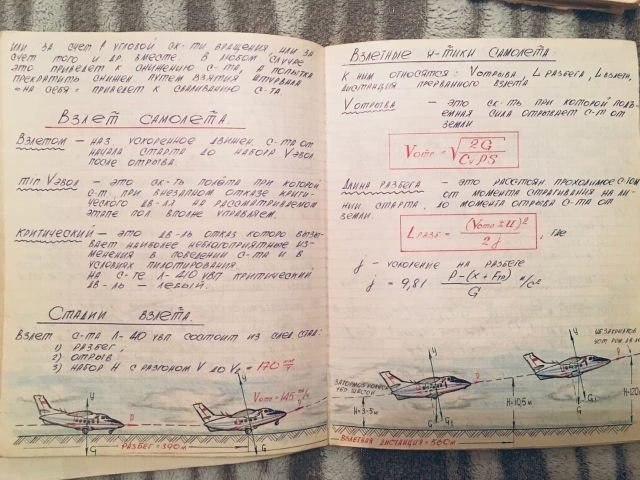 или за счет ↑ угловой ск-ти вращения, или за
счет того и др. вместе. В любом случае
это приведет к снижению с-та, а попытка
прекратить снижен. путем взятия штурвала
"на себя" приведет к сваливанию с-та.
Взлет самолета.
Взлетом — наз ускоренное движен. с-та от
начала старта до набора Vэвол
после отрыва.
min Vэвол — это ск-ть полета при которой
с-т при внезапном отказе крити-
ческого дв-ля на рассматриваемом
этапе пол. вполне управляем.
Критический — это дв-ль отказ которого вызы-
вает наиболее неблагоприятные из-
менения в поведении с-та и в
условиях пилотирования
на с-те Л-410 увп критический
дв-ль — левый.
Стадии взлета.
Взлет с-та Л-410 увп состоит из след. стад:
1) разбег;
2) отрыв;
3) набор H с разгоном V до V₂ = 170 км/ч
Vотр = 145 км/ч
Y
P
G
Y
P
G
Разбег = 390м
Взлетные х-тики самолета.
К ним относятся: Vотрыва, L разбега, L взлетн,
дистанция прерванного взлета.
Vотрыва — это ск-ть при которой подъ-
емная сила отрывает с-т от
земли
Vотр = √2G/CyρS
Длина разбега — это расстоян. проходимое с-том
от момента страгивания на ли-
нии старта до момента отрыва с-та от
земли.
L разб = (Vотр ± U)²/2j, где
j - ускорение на разбеге
j = 9,81 P-(X+Fтр)/G м/с²
Заторможу колеса
Убр. шасси
H=3-5м
Y
P
G₂
G₁
G
H=10,5м
Y
P
G₂
G₁
G
H=120м
Взлетная дистанция = 560м